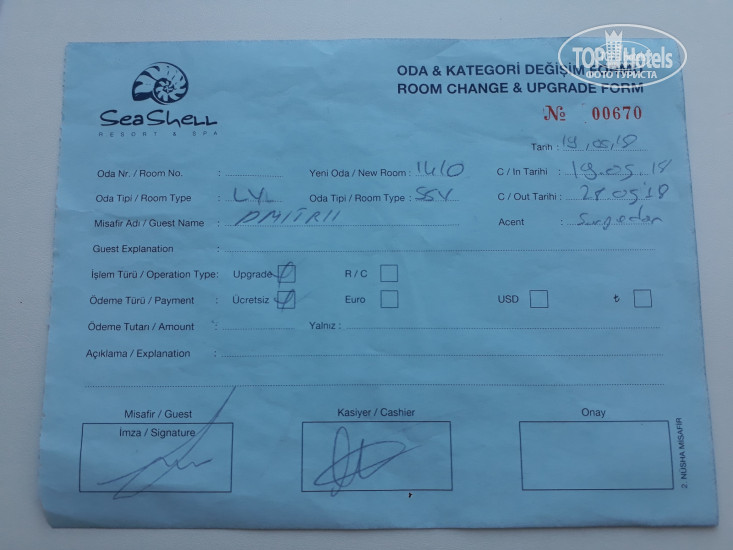 TOP Hotels
ФОТО ТУРИСТА
SeaShell
RESORT & SPA
ODA & KATEGORİ DEĞİŞİM
ROOM CHANGE & UPGRADE FORM
№ 00670
Tarih : 19.05.18
Oda Nr. / Room No. : Yeni Oda / New Room : 1410 C / In Tarihi : 19.05.18
Oda Tipi / Room Type : LVL Oda Tipi / Room Type : SSV C / Out Tarihi : 28.05.18
Misafir Adı / Guest Name : DMITRII Acent :
Guest Explanation :
İşlem Türü / Operation Type: Upgrade R / C
Ödeme Türü / Payment : Ücretsiz Euro USD ₺
Ödeme Tutarı / Amount : Yalnız :
Açıklama / Explanation :
Misafir / Guest Kasiyer / Cashier Onay
İmza / Signature
2. NÜSHA MİSAFİR